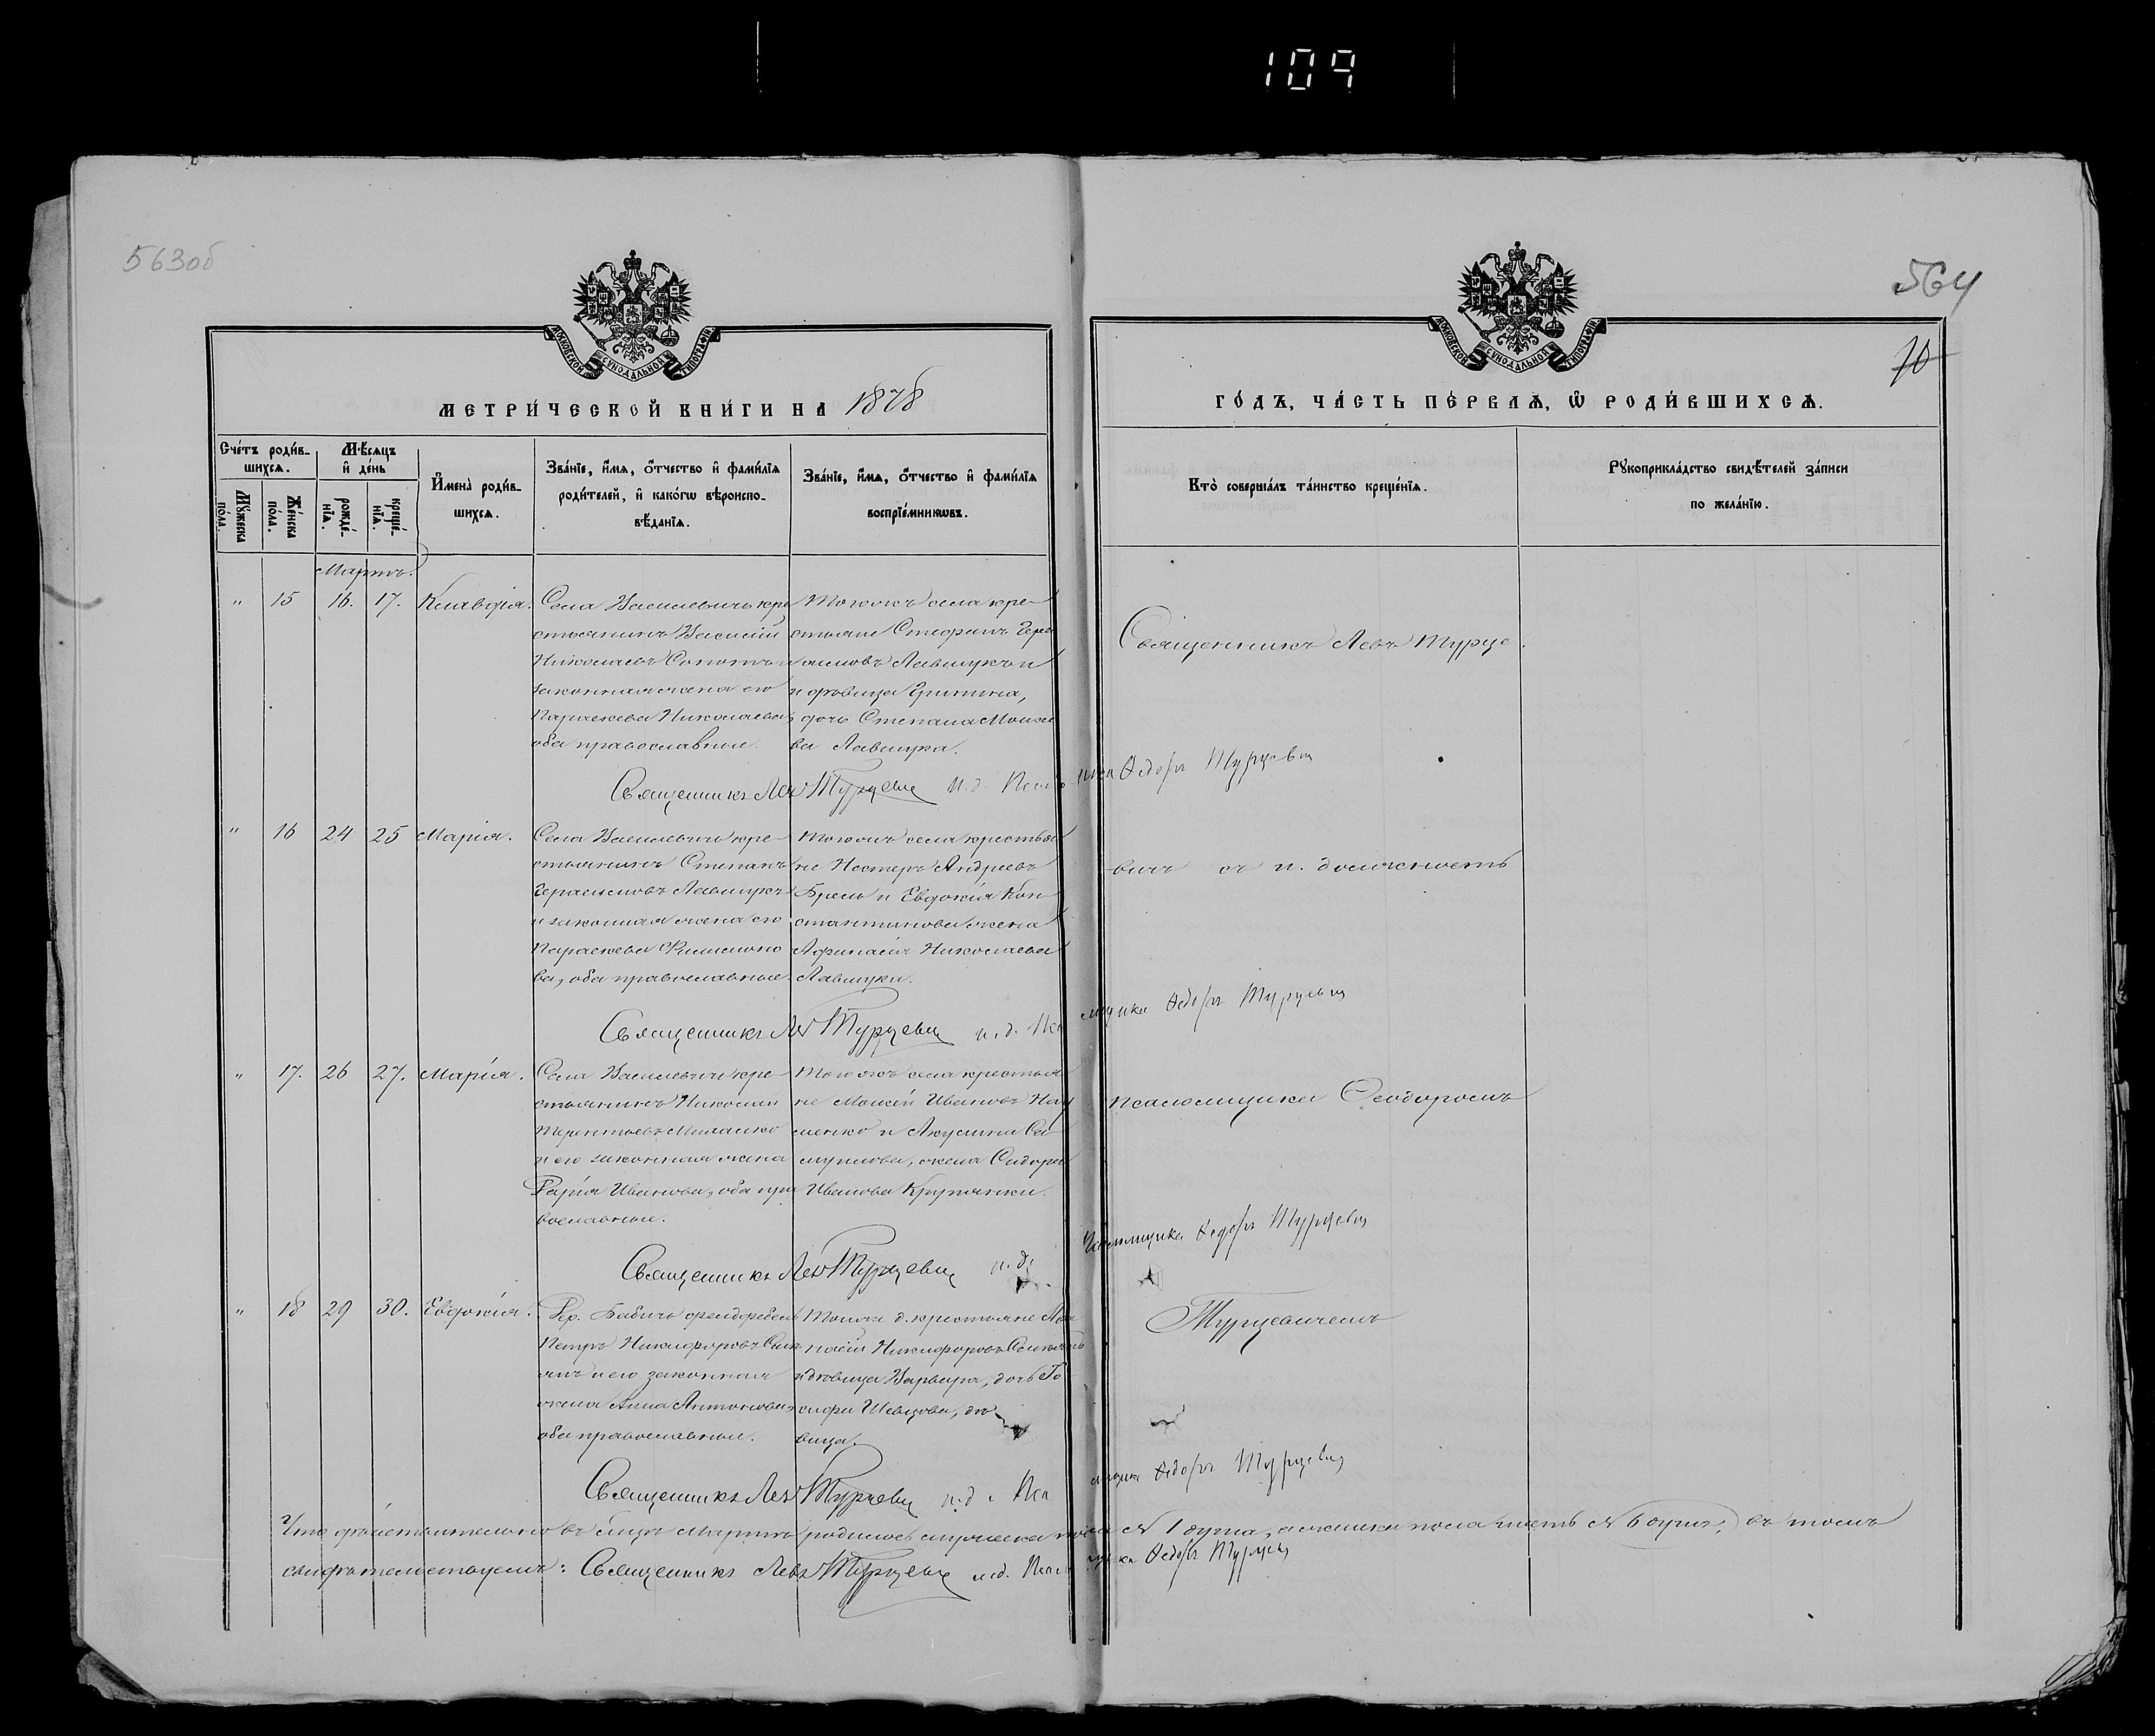 109
563об
564
10
МОСКОВСКОЙ СѴНОДАЛЬНОЙ ТИПОГРАФІИ
МОСКОВСКОЙ СѴНОДАЛЬНОЙ ТИПОГРАФІИ
МЕТРИ́ЧЕСКОЙ КНИ́ГИ НА 1878
ГО́ДЪ, ЧА́СТЬ ПЕ́РВАѦ, Ѡ҆ РОДИ́ВШИХСѦ.
Сче́тъ роди́в-
шихсѧ.
Мꙋ́жеска
по́ла.
Же́нска
по́ла.
Мѣ́сѧцъ
и҆ де́нь
рожде́-
нїѧ.
креще́-
нїѧ.
И҆мена̀ роди́в-
шихсѧ.
Зва́нїе, и҆́мѧ, ѻ҆́тчество и҆ фами́лїѧ
роди́телей, и҆ како́гѡ вѣроиспо-
вѣ́данїѧ.
Зва́нїе, и҆́мѧ, ѻ҆́тчество и҆ фами́лїѧ
воспрїе́мникѡвъ.
Кто̀ соверша́лъ та́инство креще́нїѧ.
Рꙋкоприкла́дство свидѣ́телей за́писи
по жела́нїю.
Мартъ.
" 15 16. 17. Клавдія.
Села Василевичъ кре
стьянинъ Василій
Николаевъ
законная жена его
Параскева Николаева,
оба православные.
Тогожъ села кре-
стьяне Стефанъ Гера
симовъ Лавшукъ и
и дѣвица
дочь Степана Моисе
ва Лавшука.
Священникъ Левъ Турце
Священникъ Левъ Турцевич и. д. Псаломщика Ѳедоръ Турцевич
" 16 24 25 Марія.
Села Василевичъ кре-
стьянинъ Степанъ
Герасимовъ Лавшукъ
и законная жена его
Параскева Филимоно
ва, оба православные.
Тогожъ села крестья
не Несторъ Андреевъ
Брель и Евдокія Кон
стантинова жена
Афанасія Николаева
Лавшука.
вичъ съ и. должность
Священникъ Левъ Турцевич и. д. Псаломщика Ѳедоръ Турцевич
" 17. 26 27. Марія.
Села Василевичи кре-
стьянинъ Николай
Терентьевъ
и его законная жена
Марія Иванова, оба пра
вославные.
Тогожъ села крестья
не Моисей Ивановъ Нау
менко и Акулина Са
муилова, жена Сидора
Иванова
псаломщика Ѳеодоромъ
Священникъ Левъ Турцевич и. д. Псаломщика Ѳедоръ Турцевич
" 18 29 30. Евдокія.
Др. Бабичъ фельдфебель
Петръ Никифоровъ
и его законная
жена Анна Антонова,
оба православные.
Тойже д. крестьяне
Никифоровъ
и дѣвица Варвара, дочь Іо
сифа Шевцова, дѣ
вица.
Турцевичемъ
Священникъ Левъ Турцевич и. д. Псаломщика Ѳедоръ Турцевич
Что дѣйствительно въ м-цѣ Мартѣ родилось мужеска пола № 1 душа, а женска пола шесть № 6 душъ, въ томъ
свидѣтельствуемъ: Священникъ Левъ Турцевич и. д. Псаломщика Ѳедоръ Турцевич